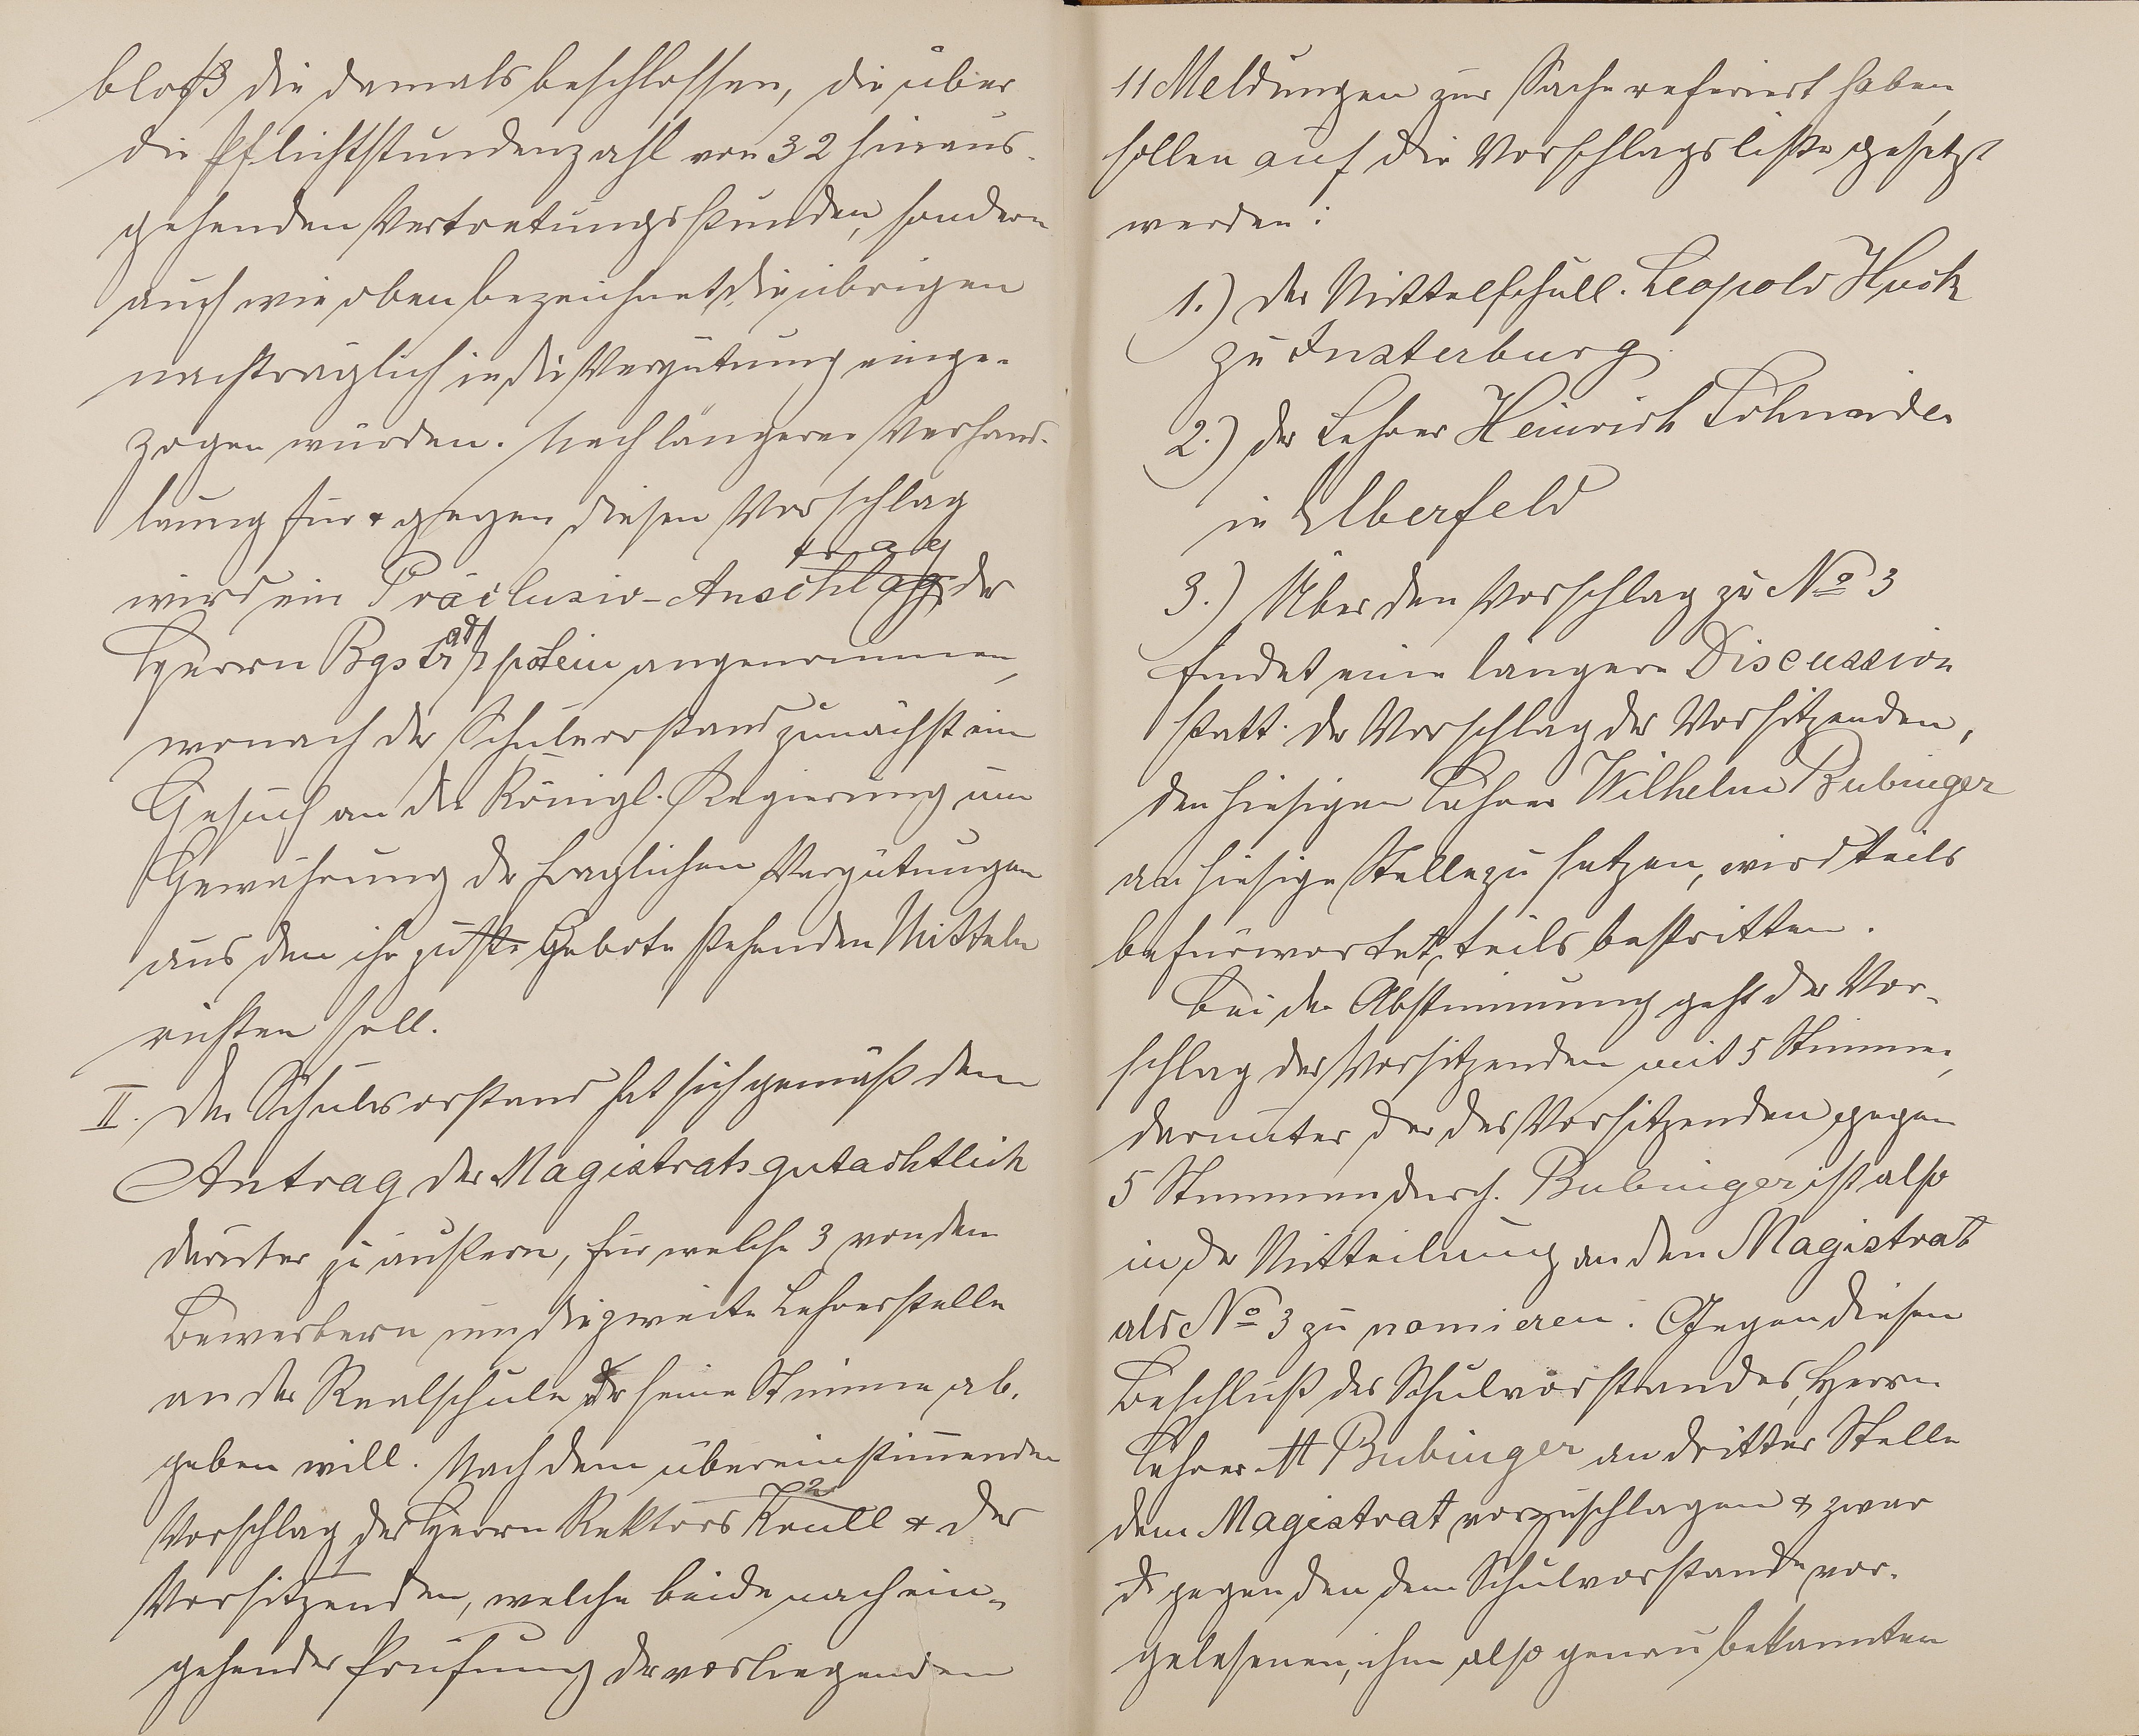 bloß die damals beschlossen, die über
die Pflichtstundenzahl von 32 hinaus-
gehenden Vertretungsstunden, sondern
auch wie oben bezeichnet, die übrigen
nachträglich in die Vergütung einge-
zogen würden. Nach längerer Verhand-
lung für & gegen diesen Vorschlag
trag
wird ein Präclusiv-Anschlag des
Herrn ppstein angenommen,
wonach der Schulvorstand zunächst ein
Gesuch an die Königl. Regierung um
Gewährung der fraglichen Vergütungen
aus den ihr zu ste Gebote stehenden Mitteln
richten soll.
II. Der Schulvorstand hat sich gemäß dem
Antrag des Magistrats gutachtlich
darüber zu äußern, für welche 3 von den
Bewerbern um die zweite Lehrerstelle
an der Realschule er seine Stimme ab-
geben will. Nach dem übereinstimmenden
Vorschlag des Herrn Rektors Krull & des
Vorsitzenden, welche beide nach ein-
gehender Prüfung der vorliegenden
11 Meldungen zur Sache referiert haben,
sollen auf die Vorschlagsliste gesetzt
werden:
1.) der Mittelschull. Leopold Huck
zu Insterburg
2.) der Lehrer Heinrich Schneider
in Elberfeld
3.) Über den Vorschlag zu No 3
findet eine längere Discussion
statt. Der Vorschlag des Vorsitzenden,
den hiesigen Lehrer Wilhelm Bubinger
an hiesige Stelle zu setzen, wird teils
befürwortet, teils bestritten.
Bei der Abstimmung geht der Vor-
schlag des Vorsitzenden mit 5 Stimmen,
darunter der des Vorsitzenden gegen
5 Stimmen durch. Bubinger ist also
in der Mitteilung an den Magistrat
als No 3 zu nomieren. Gegen diesen
Beschluß des Schulvorstandes, Herrn
Lehrer Bubinger an dritter Stelle
dem Magistrat vorzuschlagen & zwar
d gegen den dem Schulvorstande vor-
gelesenen, ihm also genau bekannten